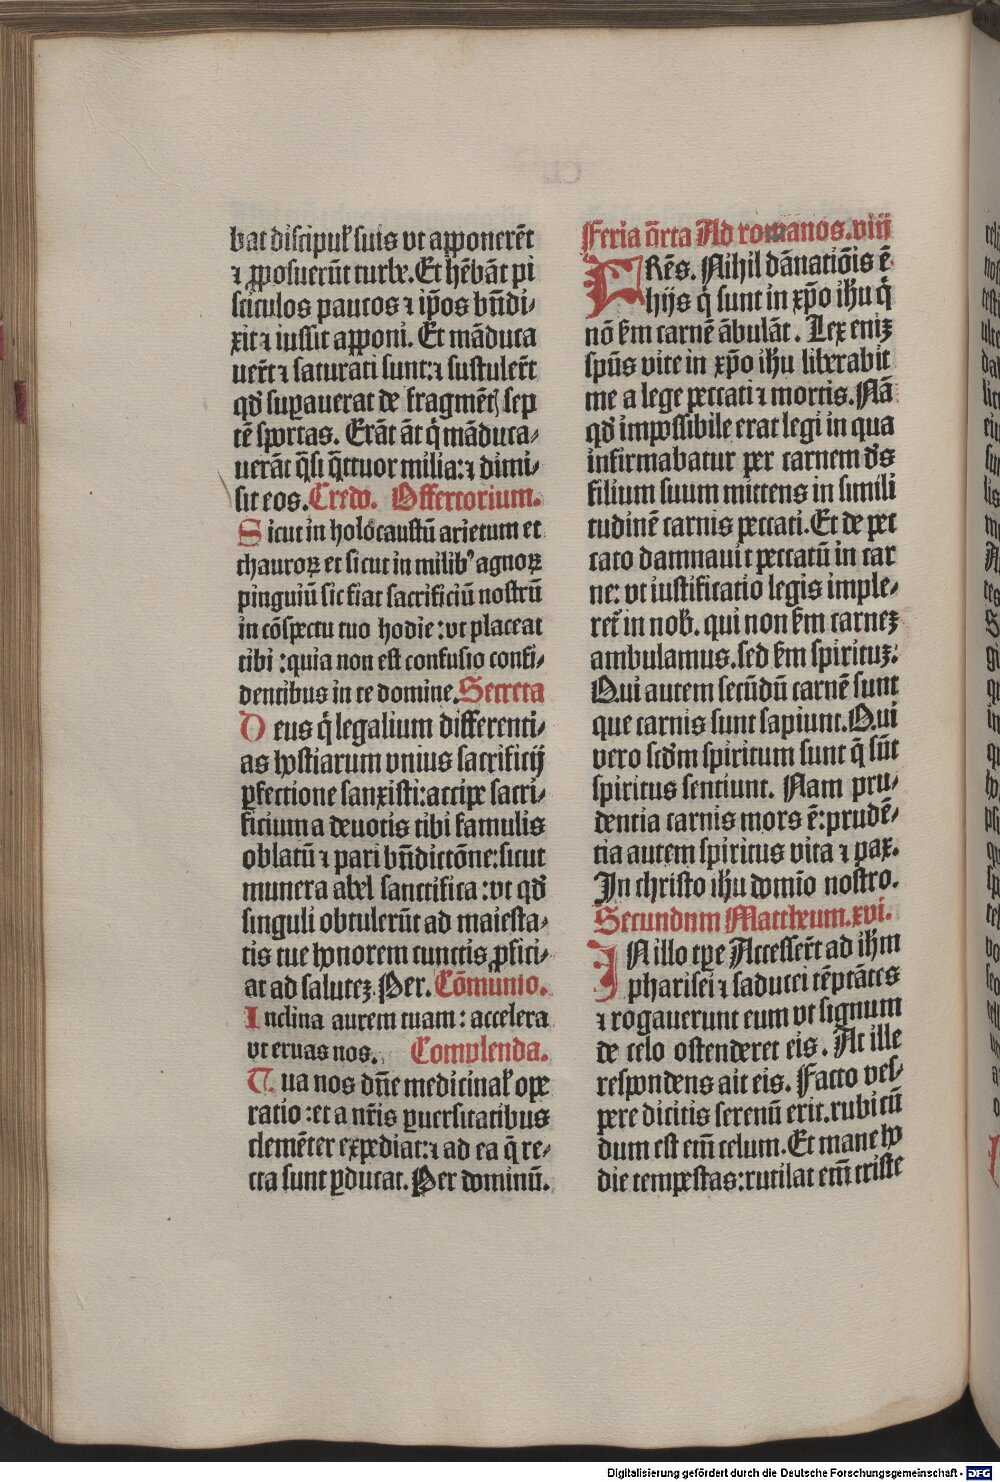 bat discipul̕ suis vt apponerēt
⁊ ꝓposuerūt turbe. Et hēbāt pi
sciculos paucos ⁊ ip̄os bn̄di⸗
xit ⁊ iussit apponi. Et māduca
uer̄t ⁊ saturati sunt: ⁊ sustuler̄t
qd̓ suꝑauerat de fragmēt̕ sep
tē sportas. Erāt āt q̇ māduca⸗
uerāt q̄si q̄ttuor milia: ⁊ dimi⸗
sit eos. Credo. Offertorium.
Sicut in holocaustū arietum et
thauroꝝ et sicut in milib᾽ agnoꝝ
pinguiū sic fiat sacrificiū nostrū
in cōspectu tuo hodie: vt placeat
tibi: quia non est confusio confi⸗
dentibus in te domine. Secreta
Deus q̇ legalium differenti⸗
as hostiarum vnius sacrificij
ꝑfectione sanxisti: accipe sacri⸗
ficium a deuotis tibi famulis
oblatū ⁊ pari bn̄dictōne: sicut
munera abel sanctifica: vt qd̓
singuli obtulerūt ad maiesta⸗
tis tue honorem cunctis ꝓfici⸗
at ad salutez. Per. Cōmunio.
Inclina aurem tuam: accelera
vt eruas nos. Complenda.
Tua nos dn̄e medicinal̕ ope
ratio: et a nr̄is ꝑuersitatibus
clemēter expediat: ⁊ ad ea q̄ re⸗
cta sunt ꝑducat. Per dominū.
Feria q̄rta Ad romanos. viij
FRēs. Nihil dānatiōis ē
hijs q̇ sunt in xp̄o ihu q̇
nō km̄ carnē ābulāt. Lex eniz
spūs vite in xp̄o ihu liberabit
me a lege peccati ⁊ mortis. Nā
qd̓ impossibile erat legi in qua
infirmabatur per carnem d̓s
filium suum mittens in simili
tudinē carnis peccati. Et de pec
cato damnauit peccatū in car
ne: vt iustificatio legis imple⸗
ret̄ in nob. qui non km̄ carnez
ambulamus. sed km̄ spirituz:
Qui autem secūdū carnē sunt
que carnis sunt sapiunt. Qui
vero scd̓m spiritum sunt q̄ sūt
spiritus sentiunt. Nam pru⸗
dentia carnis mors ē: prudē⸗
tia autem spiritus vita ⁊ pax.
In christo ihu domīo nostro.
Secundum Mattheum. xvi.
IN illo tꝑe Accesser̄t ad ihm̄
pharisei ⁊ saducei tēptātes
⁊ rogauerunt eum vt signum
de celo ostenderet eis. At ille
respondens ait eis. Facto ves⸗
pere dicitis serenū erit. rubicū
dum est em̄ celum. Et mane ho
die tempestas: rutilat em̄ triste
Digitalisierung gefördert durch die Deutsche Forschungsgemeinschaft - DFG